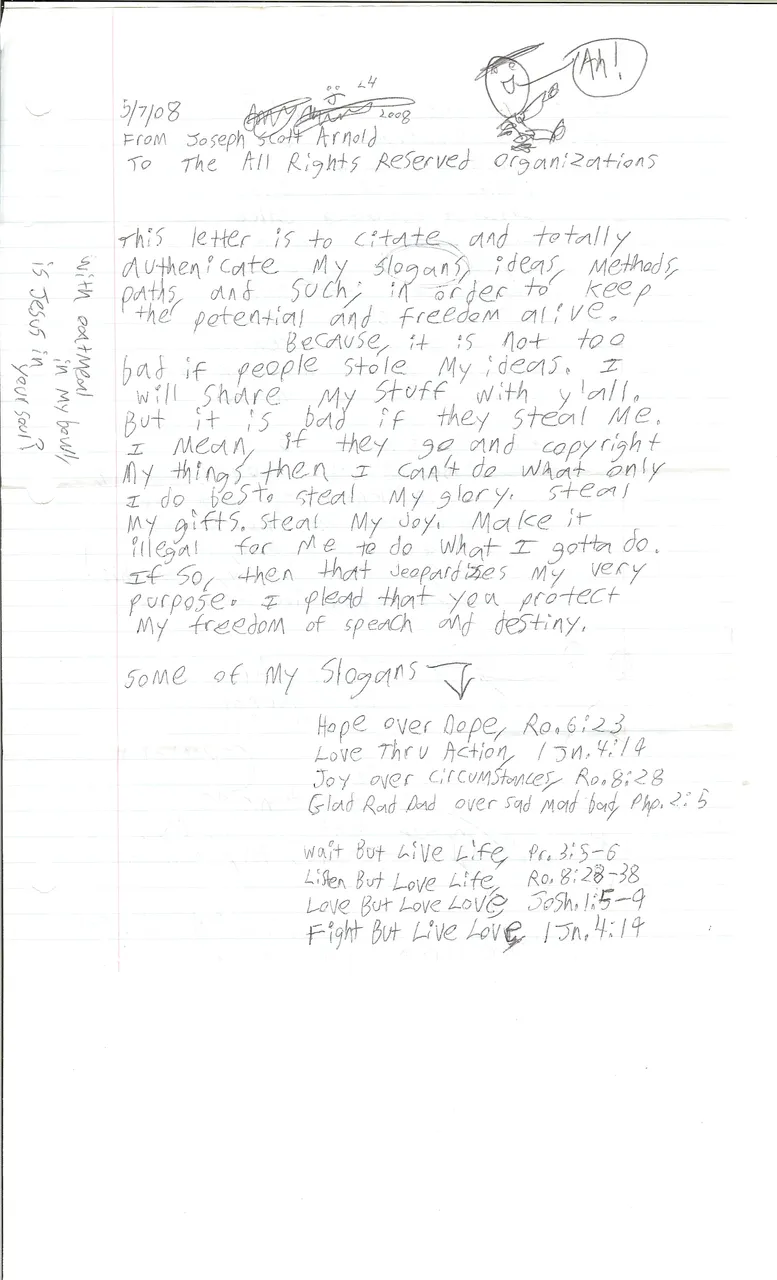 Ah!
5/7/08
2008
From Joseph Scott Arnold
To The All Rights Reserved Organizations
This letter is to citate and totally
authenicate My slogans, ideas, Methods,
paths, and such; in order to keep
the potential and freedom alive.
Because, it is not too
bad if people stole My ideas. I
will share My stuff with y'all.
But it is bad if they steal Me.
I Mean, if they go and copyright
My things then I can't do what only
I do best. steal My glory. steal
My gifts. steal My Joy. Make it
illegal for Me to do what I gotta do.
If so, then that Jeopardizes My very
purpose. I plead that you protect
My freedom of speach and destiny.
Some of My Slogans
Hope over Dope, Ro. 6:23
Love Thru Action, 1 Jn. 4:19
Joy over circumstances, Ro. 8:28
Glad Rad Dad over sad mad bad, Php. 2:5
Wait But Live Life, Pr. 3:5-6
Listen But Love Life, Ro. 8:28-38
Love But Love Love, Josh. 1:5-9
Fight But Live Love, 1 Jn. 4:19
with oatmeal
in My bowl,
is Jesus in
your soul?